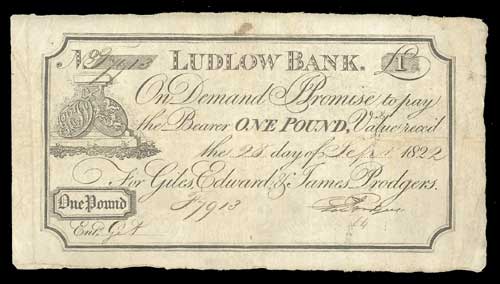 No P7913 LUDLOW BANK. £1
On Demand I Promise to pay
the Bearer ONE POUND, Value rec'd
the 28 day of Sept 1822
For Giles, Edward & James Prodgers.
One Pound P7913
Entd.